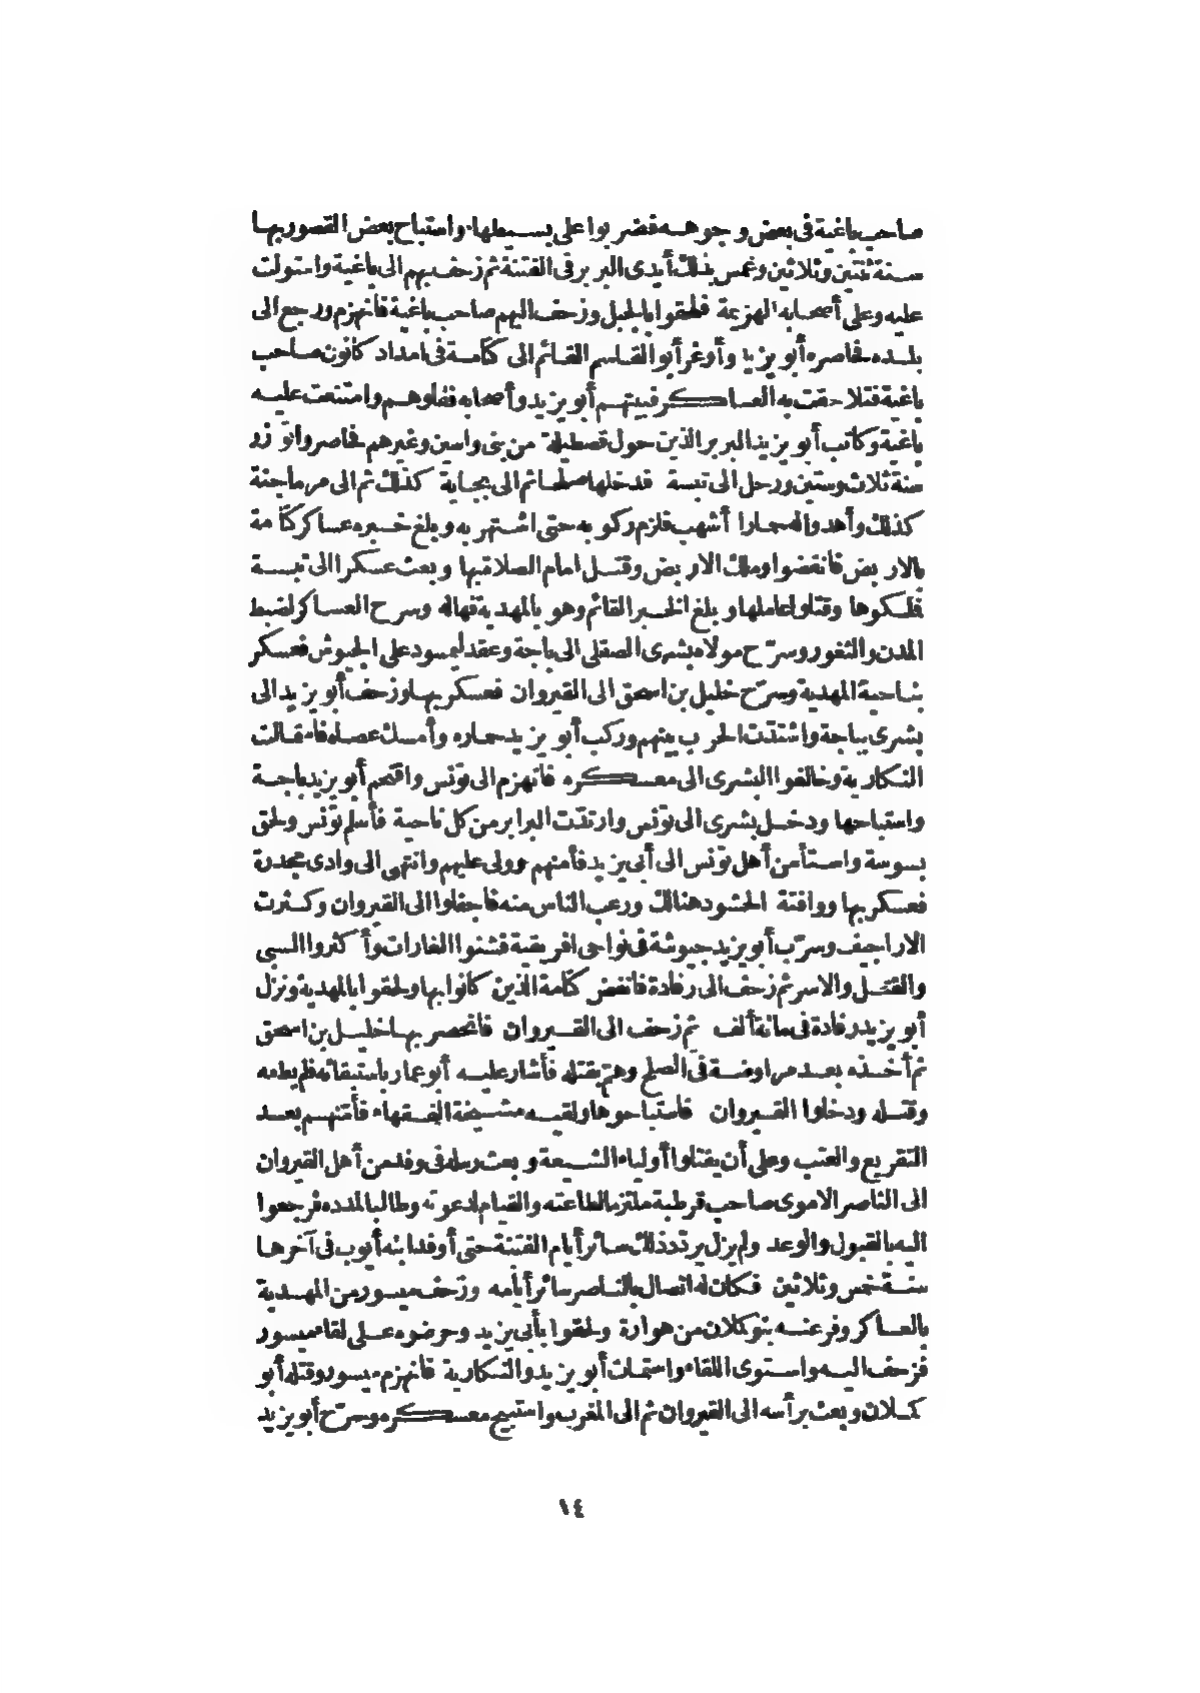 صاحب باغية فى بعض وجوهــه فضربوا على بسـيطها واستباح بعض القصور بهـا
سـنة ثنتين وثلاثين وغمس بذلك أيدى البربر فى الفتنة ثم زحف بهم الى باغية واستولت
عليه وعلى أصحابه الهزيمة فلحقوا بالجبل وزحف اليهم صاحب باغية فانهزم ورجع الى
بلــده فحاصره أبو يزيد وأوعز أبو القـاسم القـائم الى كتامـة فى امداد كانون صـاحب
باغية فتلاحقت به العسـاكر فبيتهـم أبو يزيد وأصحابه ففلوهـم وامتنعت عليـه
باغية وكاتب أبو يزيد البربر الذين حول قصطيلة من بنى واسين وغيرهم فحاصروا توزر
سنة ثلاث وستين ورحل الى تبسة فدخلها صلحا ثم الى بجاية كذلك ثم الى مرماجنة
كذلك وأهدوا له حمارا أشهب فلزم ركوبه حتى اشـتهر به وبلغ خـبره عساكر كتامة
بالاربض فانفضوا وملك الاربض وقتـل امام الصلاة بها وبعث عسكرا الى تبسـة
فلـكوها وقتلوا عاملها وبلغ الخـبر القائم وهو بالمهدية فهاله وسرح العسـاكر لضبط
المدن والثغور وسرّح مولاه بشرى الصقلى الى باجة وعقد لميسود على الجيوش فعسكر
بناحية المهدية وسرّح خليل بن اسحق الى القيروان فعسكر بهـا وزحف أبو يزيد الى
بشرى بباجة واشتدّت الحرب بينهم وركب أبو يزيد حماره وأمسك عصـاه فاستمالت
النـكارية وخالفوا البشرى الى معسـكره فانهزم الى تونس واقتحم أبو يزيد باجـة
واستباحها ودخـل بشرى الى تونس وارتدّت البرابر من كل ناحية فأسلم تونس ولحق
بسوسة واسـتأمن أهل تونس الى أبى يزيد فأمنهم وولى عليهم وانتهى الى وادى مجدرة
فعسكر بها ووافتة الحشود هنالك ورعب الناس منه فاجفلوا الى القيروان وكـثرت
الاراجيف وسرّب أبو يزيد جيوشه فى نواحى افريقية فشنوا الغارات وأكثروا السبى
والقتـل والاسر ثم زحف الى رفادة فانفض كتامة الذين كانوا بها ولحقوا بالمهدية ونزل
أبو يزيد رفادة فى مائة ألف ثم زحف الى القـيروان فانحصر بهـا خليـل بن اسحق
ثم أخـذه بعـد مراوضـة فى الصلح وهمّ بقتله فأشار عليـه أبو عمار باستبقائه فلم يطعه
وقتـله ودخلوا القـيروان فاستباحوها ولقيـه مشـيخة الفـقهاء فأمّنهـم بعـد
التقريع والعتب وعلى أن يقتلوا أولياء الشـيعة وبعث رسله فى وفد من أهل القيروان
الى الناصر الاموى صاحب قرطبة ملتزما لطاعته والقيام لدعوته وطالبا لمدده فرجعوا
اليه بالقبول والوعد ولم يزل يردّد ذلك سـائر أيام الفتنة حتى أوفد ابنه أيوب فى آخرهـا
سنـة خمس وثلاثين فـكان له اتصال بالنـاصر سائر أيامه وزحف ميسور من المهـدية
بالعساكر وفر عنـه بنو كملان من هوارة ولحقوا بأبى يزيد وحرضوه عـلى لقاء ميسور
فزحف اليـه واستوى اللقاء واستمات أبو يزيد والنـكارية فانهزم ميسور وقتله أبو
كملان وبعث برأسه الى القيروان ثم الى المغرب واستبيح معسـكره وسرّح أبو يزيد
١٤